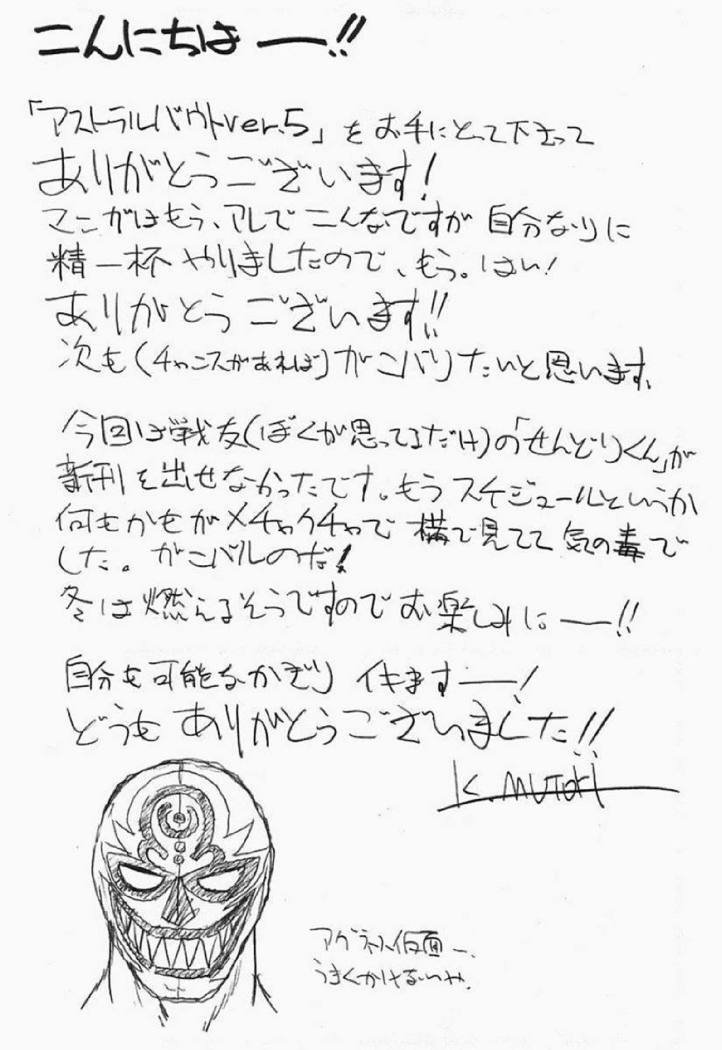 こんにちはー!!
「アストラルバウトver.5」をお手にとって下さって
ありがとうございます!
マンガはもう、アレでこんなですが自分なりに
精一杯やりましたので、もう。はい!
ありがとうございます!!
次も(チャンスがあれば)ガンバりたいと思います。
今回は戦友(ぼくが思ってるだけ)の「せんどりくん」が
新刊を出せなかったです。もうスケジュールというか
何もかもがメチャクチャで横で見てて気の毒で
した。ガンバルのだ!
冬は燃えるそうですのでお楽しみにー!!
自分も可能なかぎりイキますー!
どうもありがとうございました!!
K.MUTOH
アグネル仮面ー。
うまくかけないや。